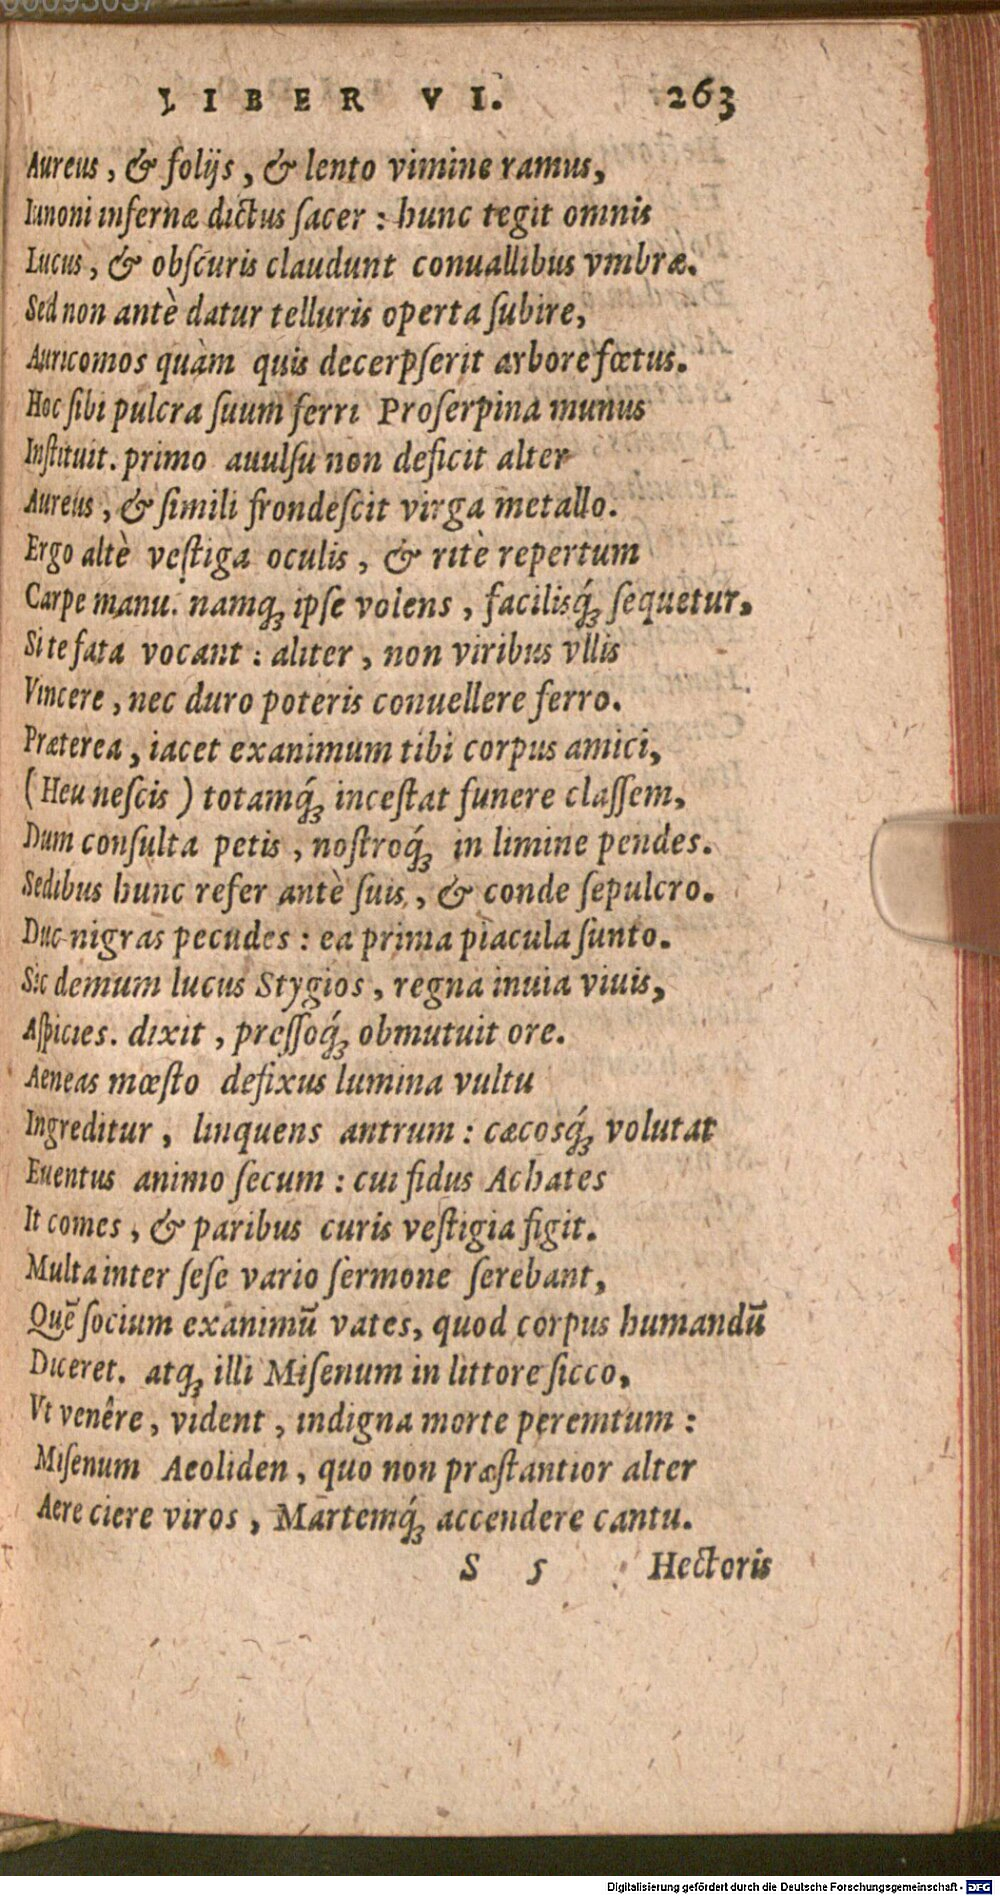 LIBER VI. 263
Aureus, & folijs, & lento vimine ramus,
Iunoni infernæ dictus sacer: hunc tegit omnis
Lucus, & obscuris claudunt conuallibus vmbræ.
Sed non antè datur telluris operta subire,
Auricomos quàm quis decerpserit arbore fœtus.
Hoc sibi pulcra suum ferri Proserpina munus
Instituit. primo auulsu non deficit alter
Aureus, & simili frondescit virga metallo.
Ergo altè vestiga oculis, & ritè repertum
Carpe manu. namq; ipse volens, facilisq́; sequetur,
Si te fata vocant: aliter, non viribus vllis
Vincere, nec duro poteris conuellere ferro.
Præterea, iacet exanimum tibi corpus amici,
(Heu nescis) totamq́; incestat funere classem,
Dum consulta petis, nostroq́; in limine pendes.
Sedibus hunc refer antè suis, & conde sepulcro.
Duc nigras pecudes: ea prima piacula sunto.
Sic demum lucus Stygios, regna inuia viuis,
Aspicies. dixit, pressoq́; obmutuit ore.
Aeneas mœsto defixus lumina vultu
Ingreditur, linquens antrum: cæcosq́; volutat
Euentus animo secum: cui fidus Achates
It comes, & paribus curis vestigia figit.
Multa inter sese vario sermone serebant,
Quē socium exanimū vates, quod corpus humandū
Diceret. atq; illi Misenum in littore sicco,
Vt venêre, vident, indigna morte peremtum:
Misenum Aeoliden, quo non præstantior alter
Aere ciere viros, Martemq́; accendere cantu.
S 5 Hectoris
Digitalisierung gefördert durch die Deutsche Forschungsgemeinschaft - DFG